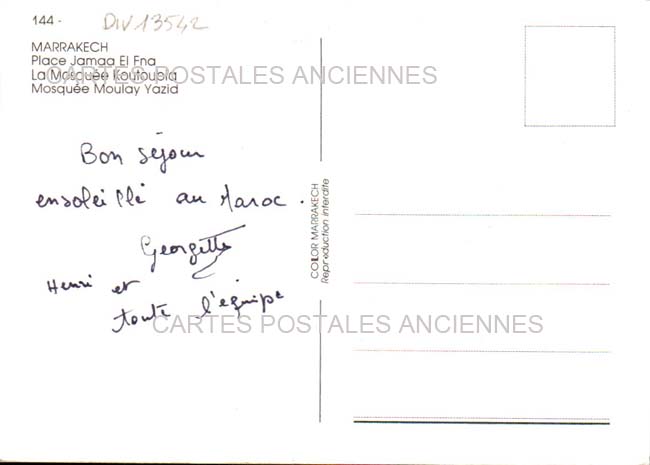 144 - DIV13542
MARRAKECH
Place Jamaa El Fna
La Mosquée Koutoubia
Mosquée Moulay Yazid
CARTES POSTALES ANCIENNES
Bon séjour
ensoleillé au Maroc.
Georgette
Henri et
toute l'équipe
COLOR MARRAKECH
Reproduction interdite
CARTES POSTALES ANCIENNES